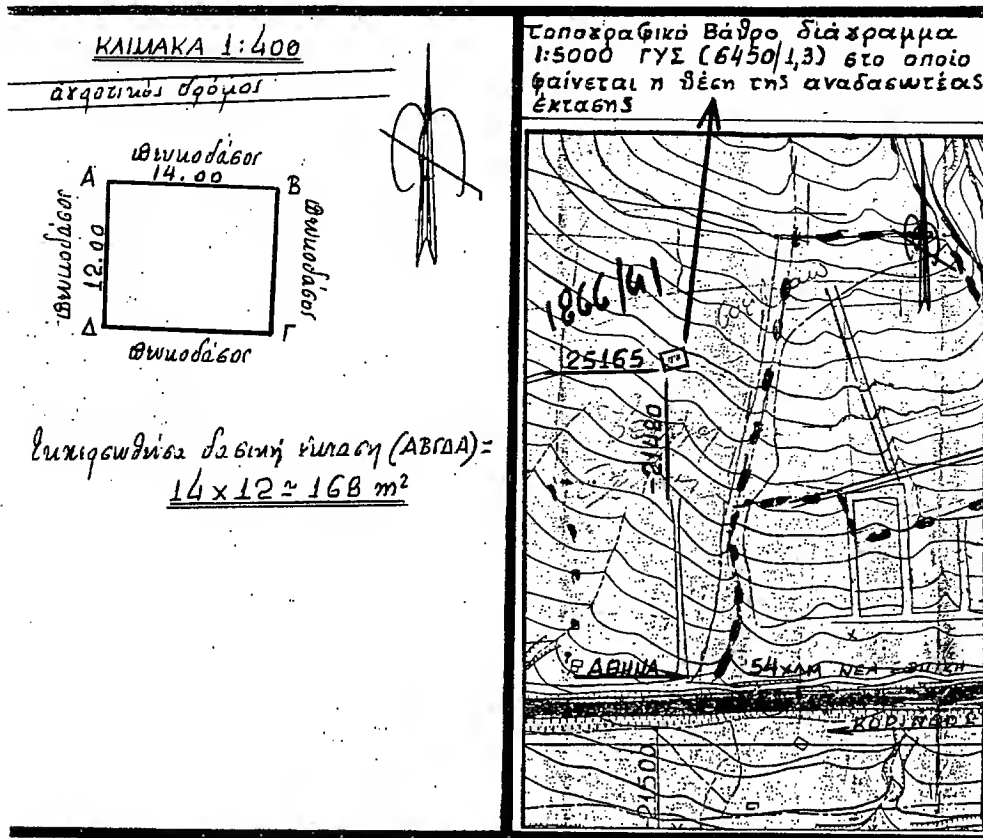 ΚΛΙΜΑΚΑ 1:400
αγροτικός δρόμος
πευκοδάσος
14.00
Α
Β
πευκοδάσος
12.00
πευκοδάσος
Δ
Γ
πευκοδάσος
δασική έκταση (ΑΒΓΔΑ)=
14 x 12 = 168 m²
τοπογραφικό Βάθρο διάγραμμα
1:5000 ΓΥΣ (6450/1,3) στο οποίο
φαίνεται η θέση της αναδασωτέας
έκτασης
1866/41
25165
-21480
ΑΘΗΝΑ
54 ΧΛΜ ΝΕΑ
ΚΟΡΙΝΘΟΣ
21500